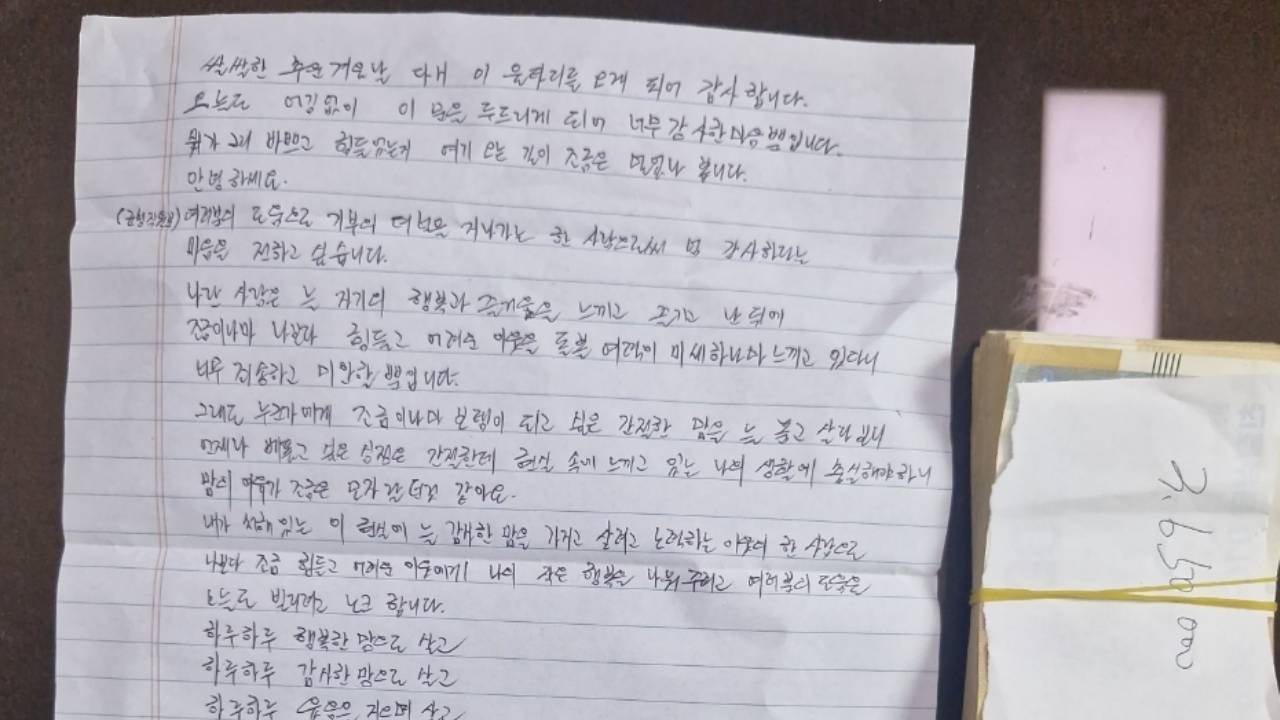 쌀쌀한 추운 겨울날 다시 이 울타리를 오게 되어 감사합니다.
오늘도 어김없이 이 문을 두드리게 되어 너무 감사한 마음뿐입니다.
뭐가 그리 바쁘고 힘들었는지 여기 오는 길이 조금은 멀었나 봅니다.
안녕하세요.
여러분의 도움으로 기부의 더 보은 지나가는 한 사람으로써 넘 감사하다는
마음을 전하고 싶습니다.
나란 사람은 늘 자기의 행복과 즐거움을 느끼고 즐기고 난 뒤에
조금이나마 나보다 힘들고 어려운 이웃을 돌볼 여력이 미세하나마 느끼고 있다니
너무 죄송하고 미안할 뿐입니다.
그래도 누군가에게 조금이나마 보탬이 되고 싶은 간절한 맘을 늘 품고 살다보니
언제나 베풀고 싶은 심정은 간절한데 현실 속에 느끼고 있는 나의 생활에 충실해야하니
맘의 여유가 조금은 모자란 것 같아요.
내가 처해 있는 이 현실에 늘 감사한 맘을 가지고 살려고 노력하는 이웃의 한 사람으로
나보다 조금 힘들고 어려운 이웃에게 나의 작은 행복을 나눠주려고 여러분의 도움을
오늘도 빌리려고 노크 합니다.
하루하루 행복한 맘으로 살고
하루하루 감사한 맘으로 살고
하루하루 웃음을 지으며 살고
000